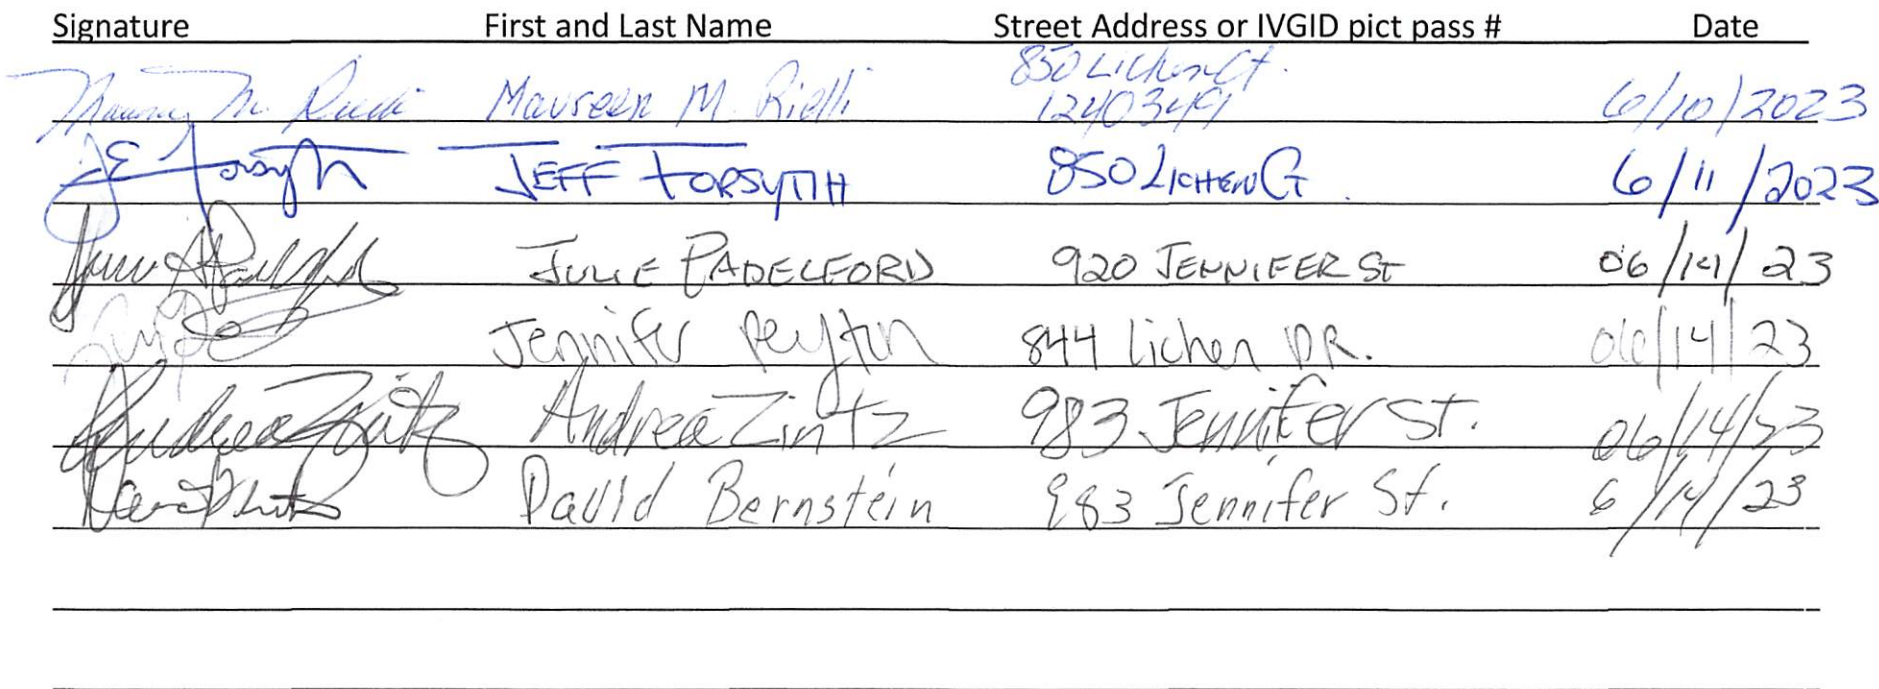 Signature First and Last Name Street Address or IVGID pict pass # Date
850 Lichen Ct.
Maureen M. Rielli 1240349 6/10/2023
JE Forsyth JEFF FORSYTH 850 LICHEN CT. 6/11/2023
JULIE PADELFORD 920 JENNIFER ST 06/14/23
Jennifer Peytin 844 Lichen DR. 06/14/23
Andrea Zintz Andrea Zintz 983 Jennifer St. 06/14/23
David Bernstein 983 Jennifer St. 6/14/23